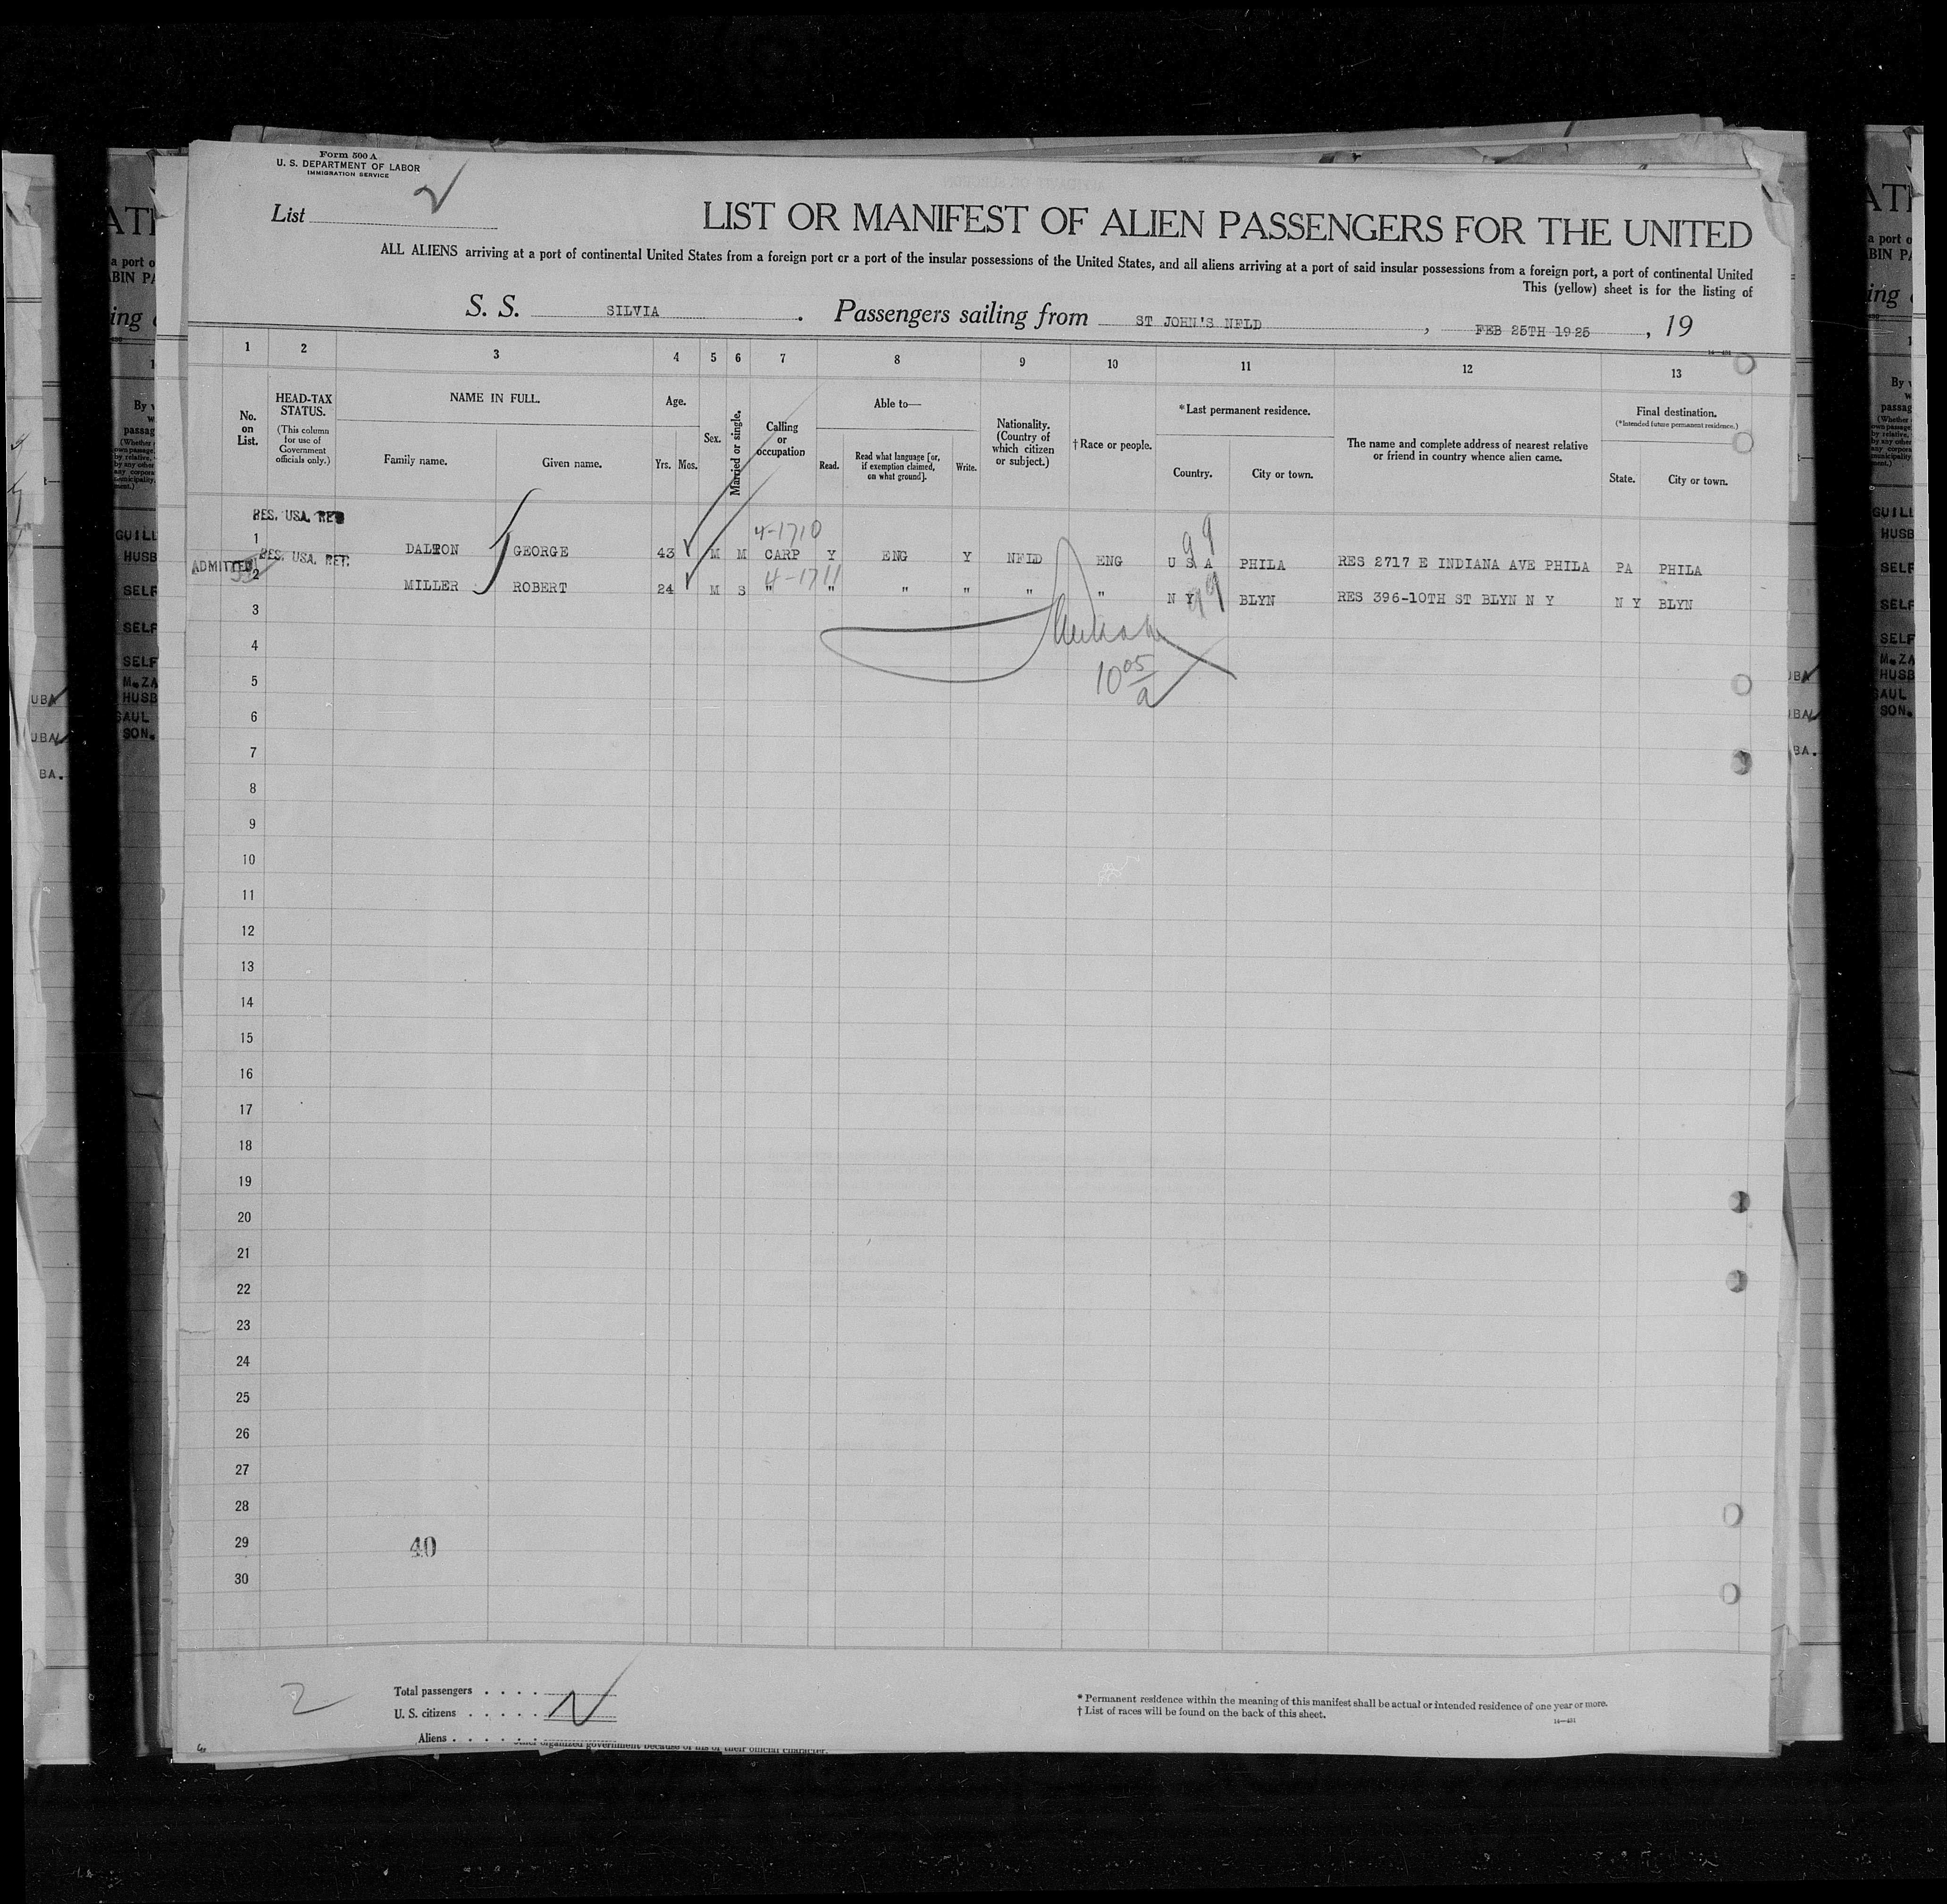 Form 500 A
U. S. DEPARTMENT OF LABOR
IMMIGRATION SERVICE
List
LIST OR MANIFEST OF ALIEN PASSENGERS FOR THE UNITED
ALL ALIENS arriving at a port of continental United States from a foreign port or a port of the insular possessions of the United States, and all aliens arriving at a port of said insular possessions from a foreign port, a port of continental United
This (yellow) sheet is for the listing of
S. S. SILVIA. Passengers sailing from ST JOHN'S NFLD, FEB 25TH 1925, 19
14—491
1 2 3 4 5 6 7 8 9 10 11 12 13
No. on List.
HEAD-TAX STATUS.
(This column for use of Government officials only.)
NAME IN FULL.
Family name. Given name.
Age.
Yrs. Mos.
Sex.
Married or single.
Calling or occupation
Able to—
Read. Read what language [or, if exemption claimed, on what ground]. Write.
Nationality. (Country of which citizen or subject.)
† Race or people.
* Last permanent residence.
Country. City or town.
The name and complete address of nearest relative or friend in country whence alien came.
Final destination.
(*Intended future permanent residence.)
State. City or town.
RES. USA. RET
4-1710
99
1 DALTON GEORGE 43 M M CARP Y ENG Y NFLD ENG U S A PHILA RES 2717 E INDIANA AVE PHILA PA PHILA
ADMITTED RES. USA. RET.
4-1711
99
2 MILLER ROBERT 24 M S " " " " " " N Y BLYN RES 396-10TH ST BLYN N Y N Y BLYN
3
4
10 05/a
5
6
7
8
9
10
11
12
13
14
15
16
17
18
19
20
21
22
23
24
25
26
27
28
29
40
30
2
Total passengers . . . .
U. S. citizens . . . . .
Aliens . . . . . .
* Permanent residence within the meaning of this manifest shall be actual or intended residence of one year or more.
† List of races will be found on the back of this sheet.
14—491
other organized government because of his or their official character.